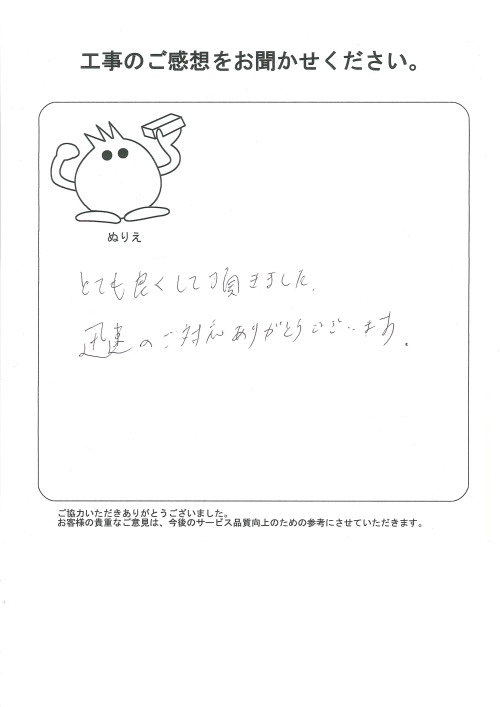 工事のご感想をお聞かせください。
ぬりえ
とても良くして頂きました.
迅速のご対応ありがとうございます。
ご協力いただきありがとうございました。
お客様の貴重なご意見は、今後のサービス品質向上のための参考にさせていただきます。